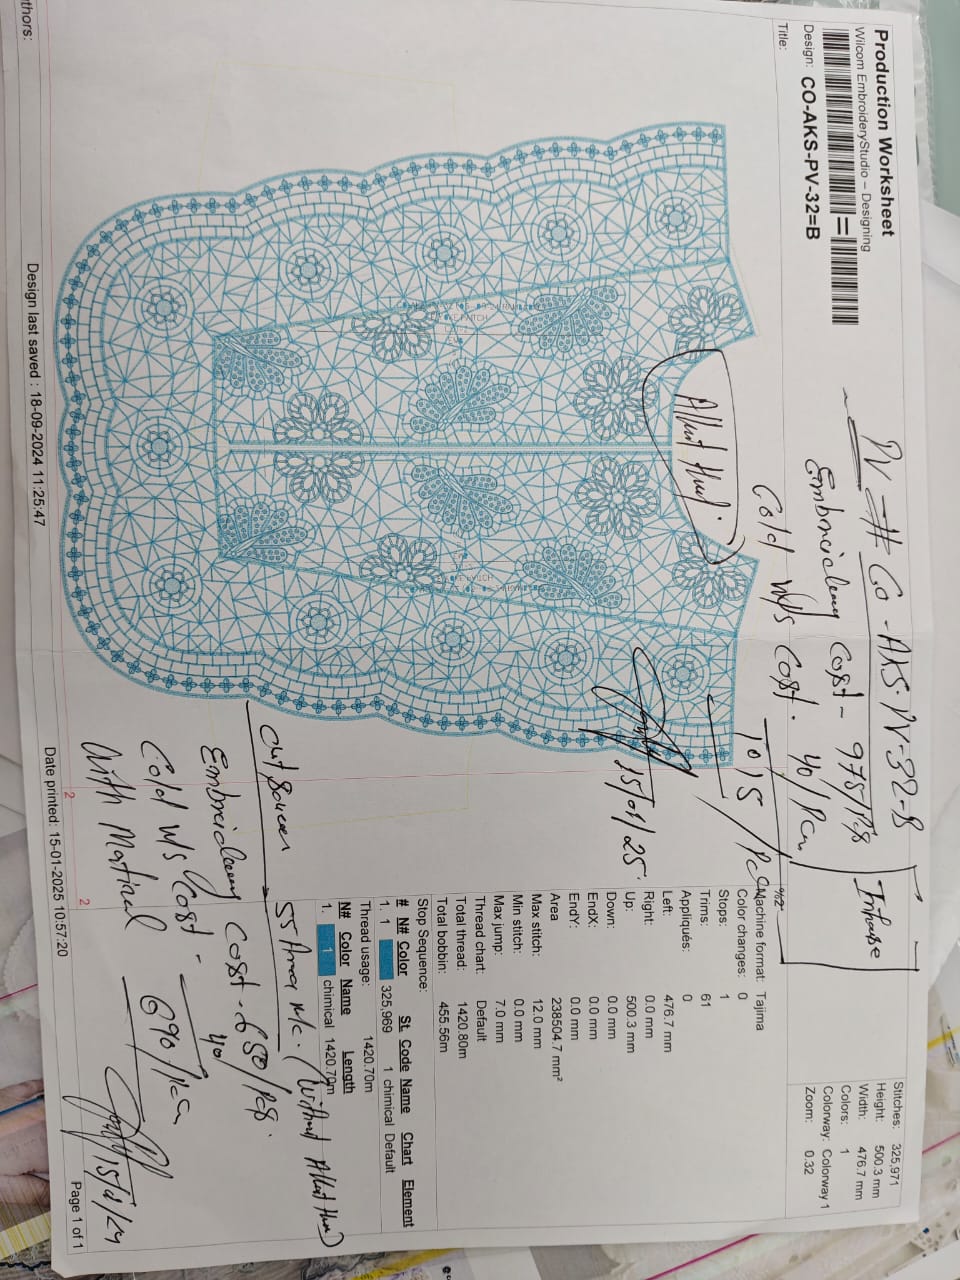 Production Worksheet
Wilcom EmbroideryStudio – Designing
Design: CO-AKS-PV-32=B
Title:
Stitches: 325,971
Height: 500.3 mm
Width: 476.7 mm
Colors: 1
Colorway: Colorway 1
Zoom: 0.32
CO-AKS-PV-32-B
Inhouse
Embroidery Cost - 975/Pcs
Cold W/s Cost. 40/Pcs
1015/Pcs
15/01/25
Machine format: Tajima
Color changes: 0
Stops: 1
Trims: 61
Appliqués: 0
Left: 476.7 mm
Right: 0.0 mm
Up: 500.3 mm
Down: 0.0 mm
EndX: 0.0 mm
EndY: 0.0 mm
Area 238504.7 mm²
Max stitch: 12.0 mm
Min stitch: 0.0 mm
Max jump: 7.0 mm
Thread chart: Default
Total thread: 1420.80m
Total bobbin: 455.56m
Stop Sequence:
# N# Color St Code Name Chart Element
1. 1 325,969 1 chimical Default
Thread usage: 1420.70m
N# Color Name Length
1. 1 chimical 1420.70m
Out Source
55 Area M/c.
Embroidery Cost - 650/Pcs.
Cold W/s Cost - 40
With Matirial 690/Pcs
Design last saved : 18-09-2024 11:25:47
Date printed: 15-01-2025 10:57:20
Page 1 of 1